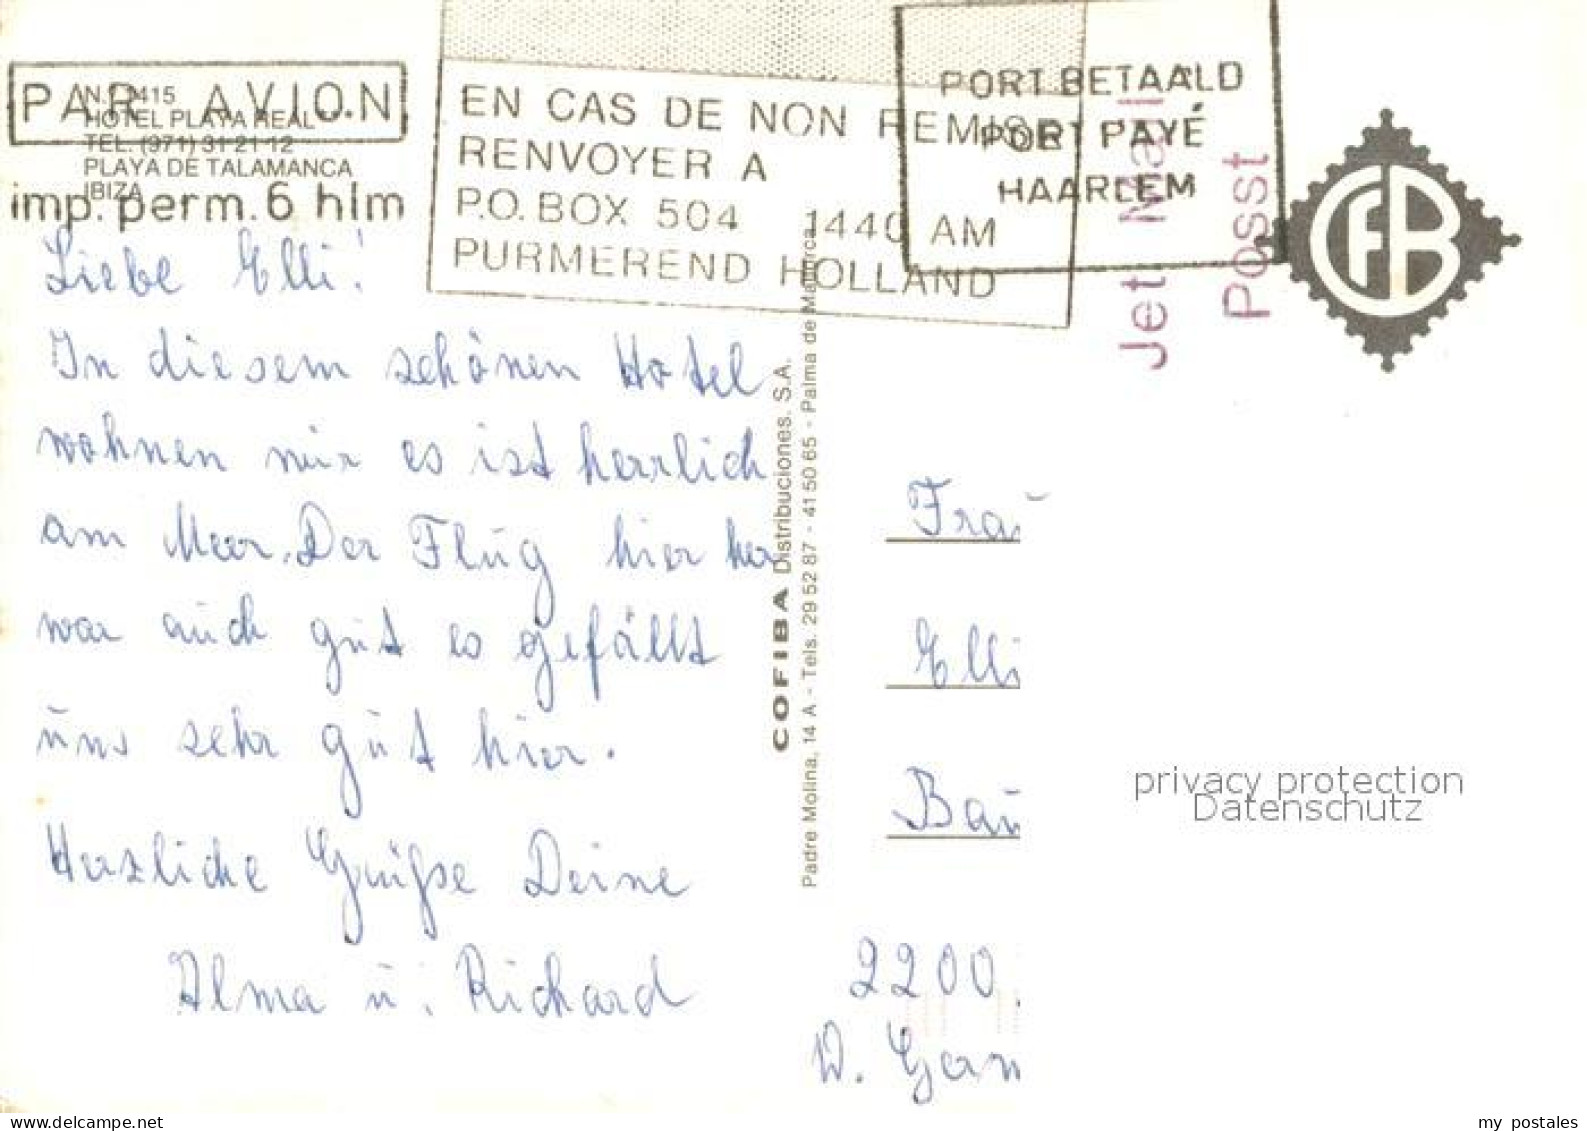 PAR AVION
imp. perm. 6 hlm
HOTEL PLAYA REAL
TEL. (971) 31 21 12
PLAYA DE TALAMANCA
IBIZA
EN CAS DE NON REMISE
RENVOYER A
P.O. BOX 504 1440 AM
PURMEREND HOLLAND
PORT BETAALD
PORT PAYÉ
HAARLEM
Jet Mail
Posst
CFB
Liebe Elli!
In diesem schönen Hotel
wohnen wir es ist herrlich
am Meer. Der Flug hier her
war auch gut es gefällt
uns sehr gut hier.
Herzliche Grüße Deine
Alma u. Richard
COFIBA Distribuciones. S.A.
Padre Molina, 14 A - Tels. 29 52 87 - 41 50 65 - Palma de Mallorca
Frau
Elli
Bau
2200
W. Germ
privacy protection
Datenschutz
www.delcampe.net
my postales